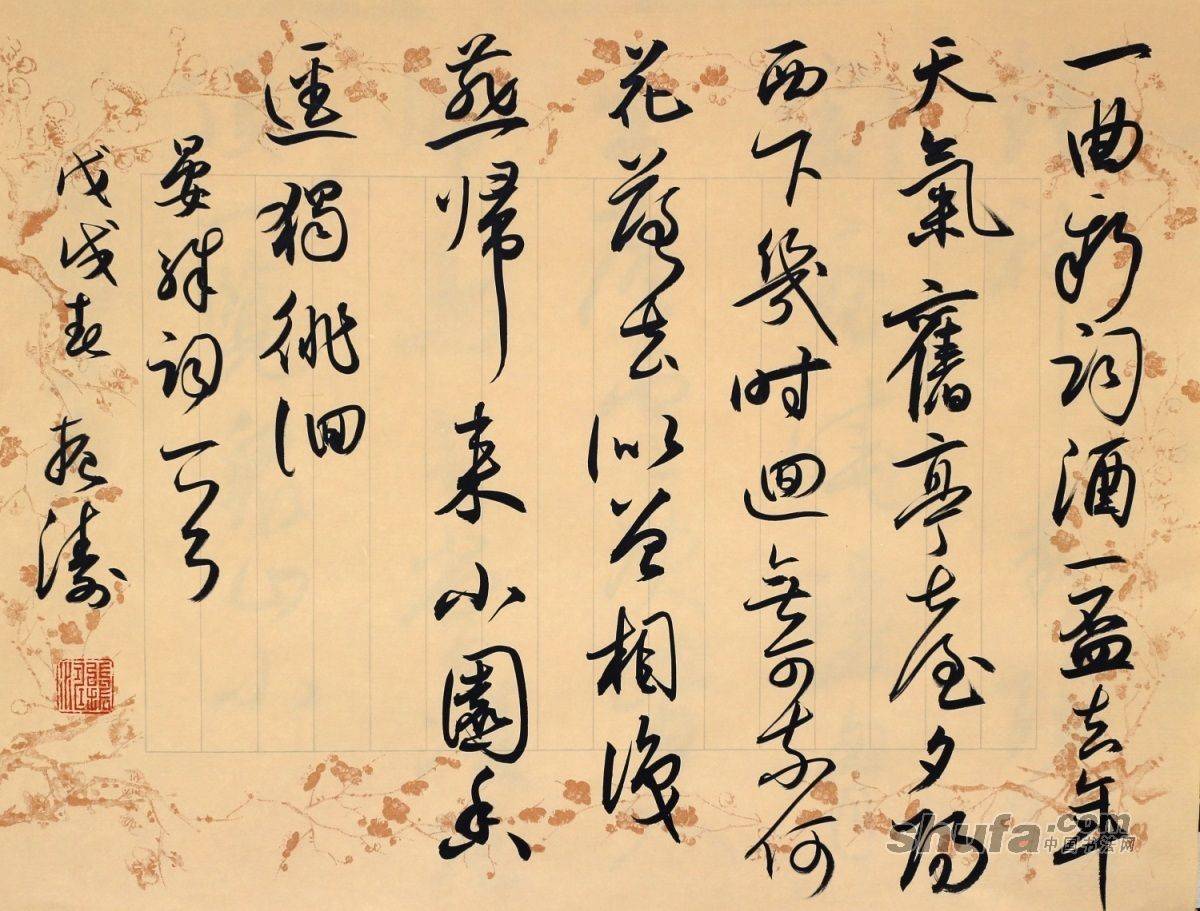 一曲新詞酒一盃去年
天氣舊亭臺夕陽
西下幾時迴無可奈何
花落去似曾相識
燕歸來小園香
逕獨徘徊
晏殊詞一首
戊戌春 振濤
shufa.com
中国书法网